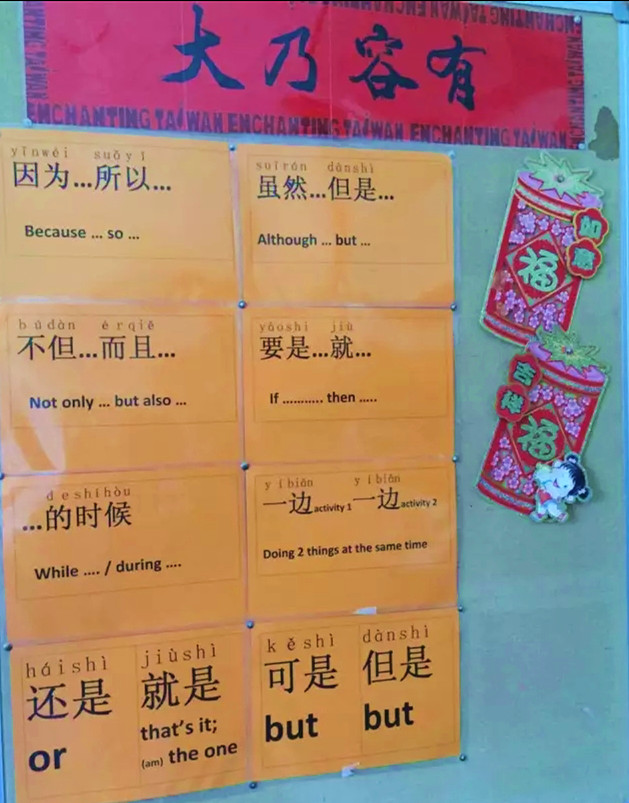 ENCHANTING TAIWAN ENCHANTING TAIWAN
有容乃大
ENCHANTING TAIWAN ENCHANTING TAIWAN ENCHANTING TAIWAN
yīnwéi suǒyǐ
因为...所以...
Because ... so ...
suīrán dànshì
虽然...但是...
Although ... but ...
búdàn érqiě
不但...而且...
Not only ... but also ...
yàoshi jiù
要是...就...
If ........... then .....
deshíhòu
...的时候
While .... / during ....
yìbiān yìbiān
一边activity 1一边activity 2
Doing 2 things at the same time
háishì
还是
or
jiùshì
就是
that's it;
(am) the one
kěshì
可是
but
dànshì
但是
but
如意
福
吉祥
福